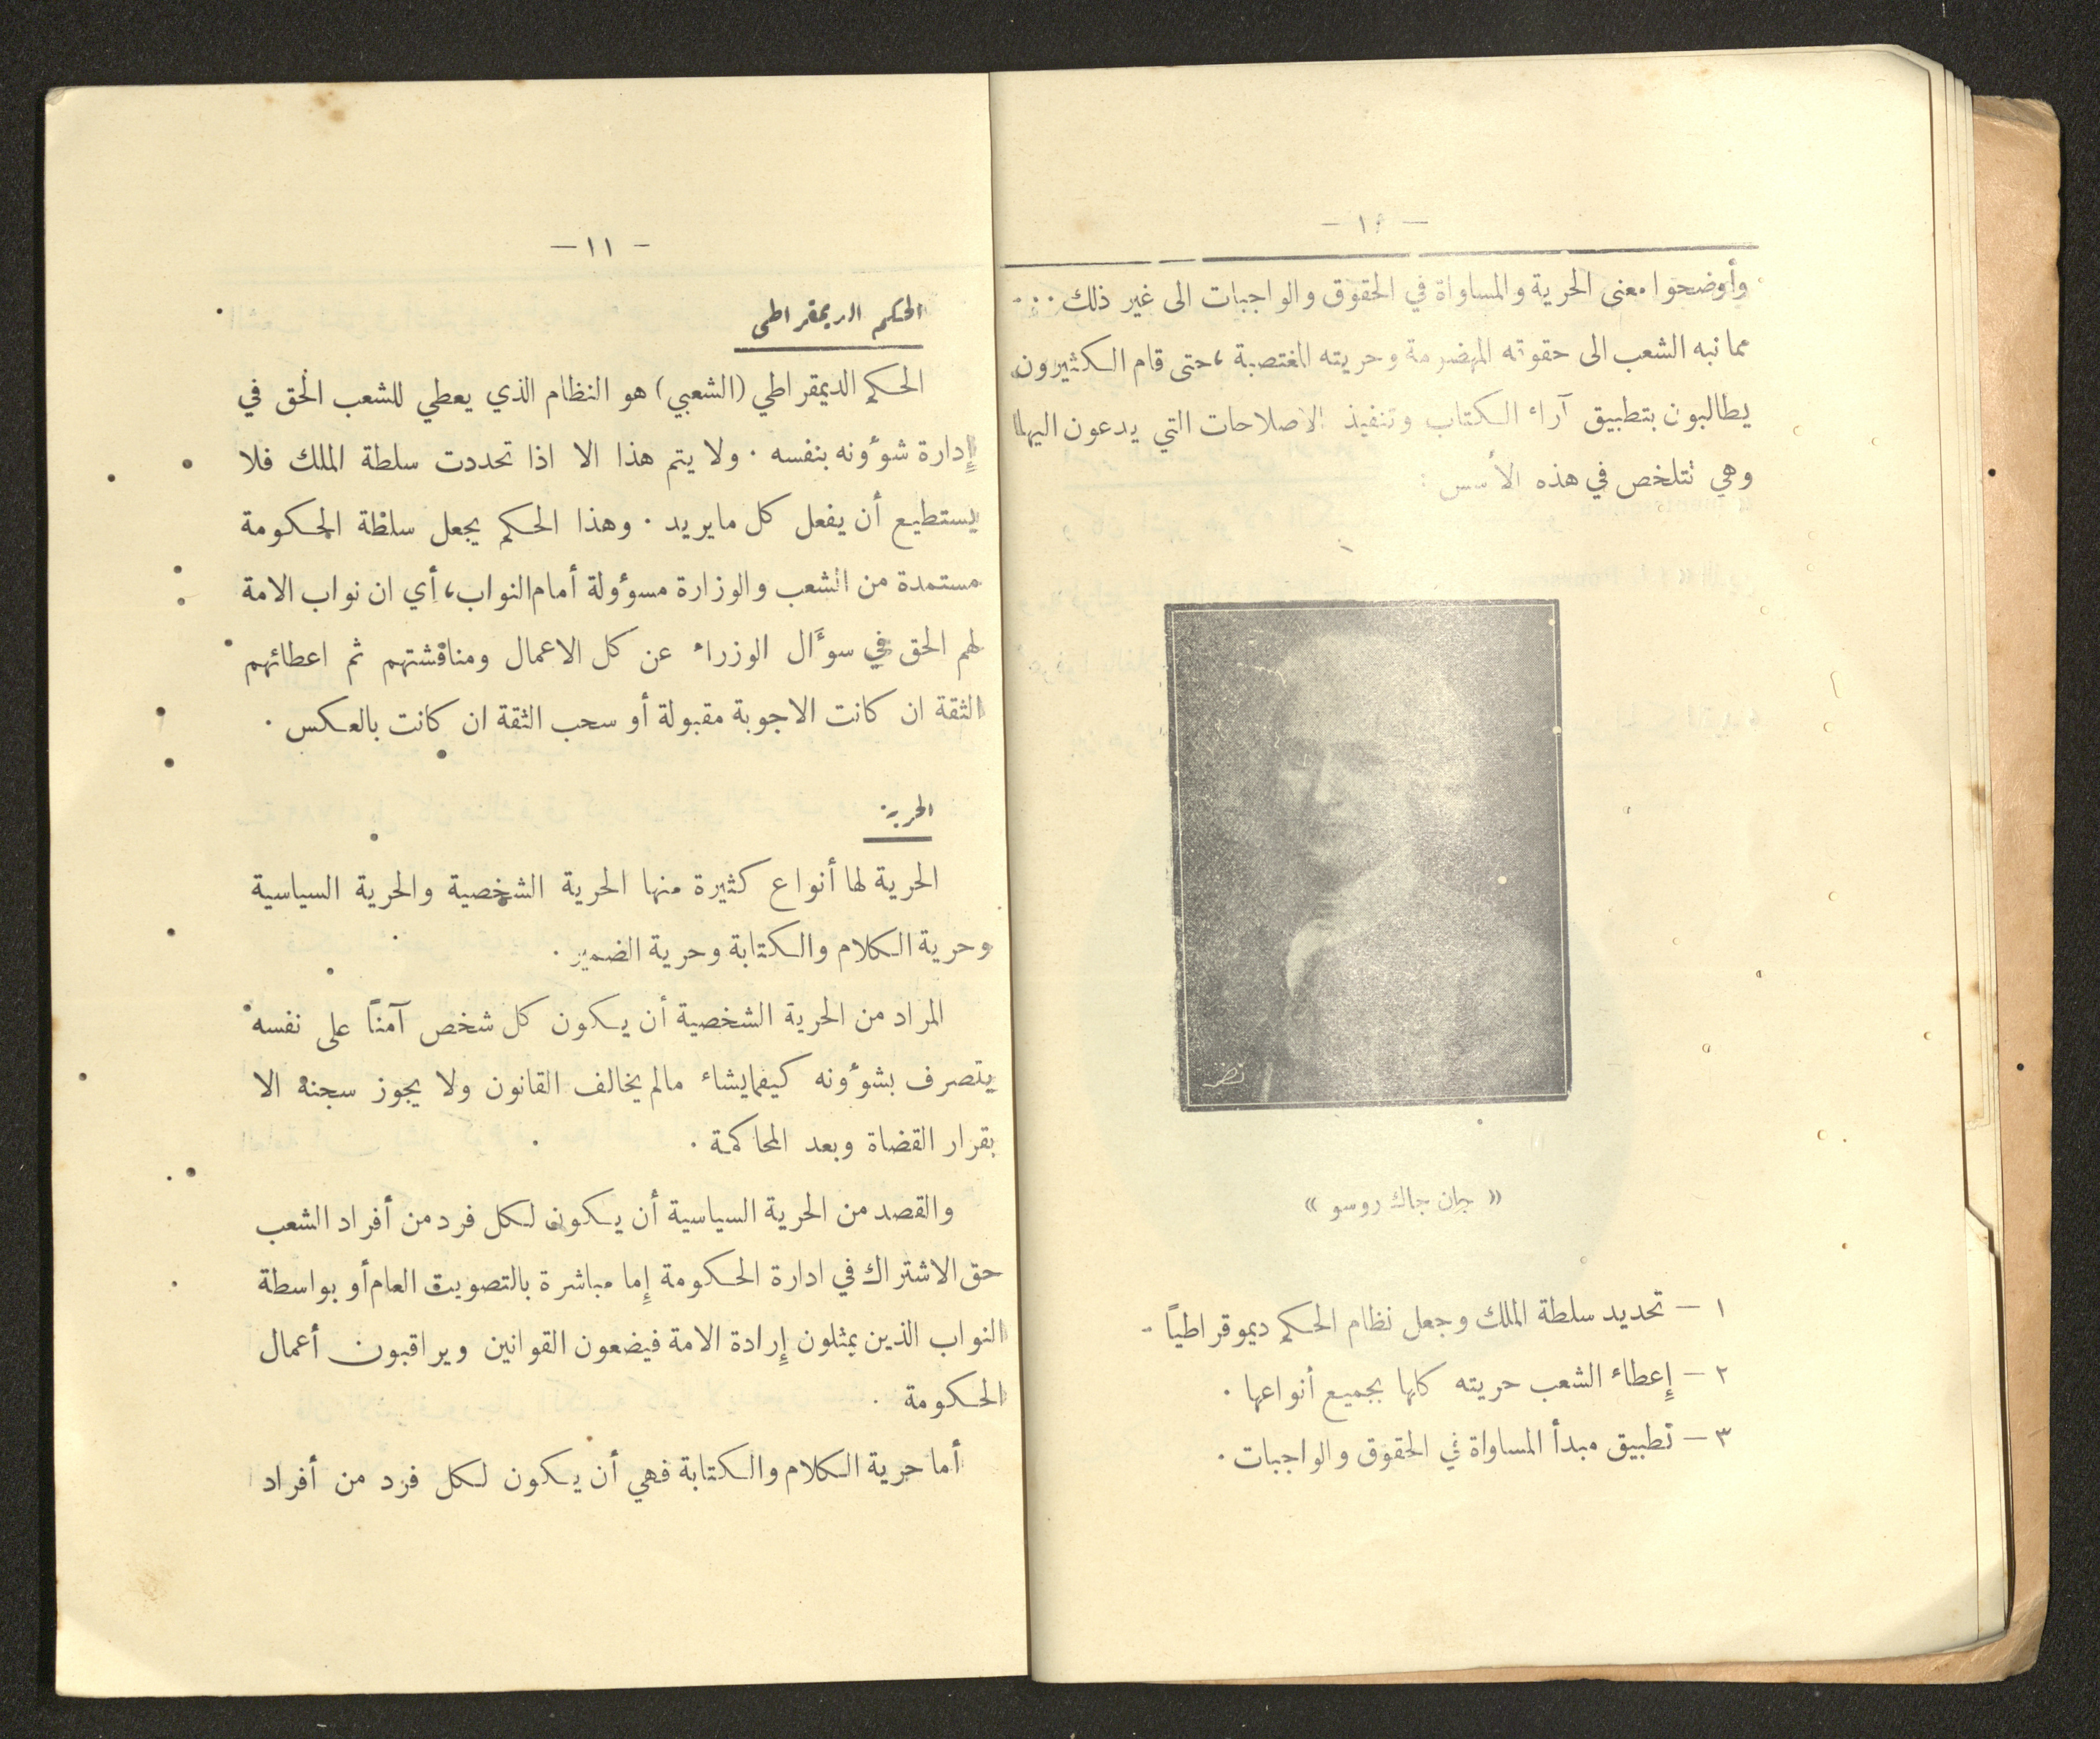 — ١٠ —
وأوضحوا معنى الحرية والمساواة في الحقوق والواجبات الى غير ذلك . . .
مما نبه الشعب الى حقوقه المهضومة وحريته المغتصبة ، حتى قام الكثيرون
يطالبون بتطبيق آراء الكتاب وتنفيذ الاصلاحات التي يدعون اليها
وهي تتلخص في هذه الأسس :
نضر
« جان جاك روسو »
١ — تحديد سلطة الملك وجعل نظام الحكم ديموقراطياً .
٢ — إعطاء الشعب حريته كلها بجميع أنواعها .
٣ — تطبيق مبدأ المساواة في الحقوق والواجبات .
— ١١ —
الحكم الديمقراطي
الحكم الديمقراطي (الشعبي) هو النظام الذي يعطي للشعب الحق في
إدارة شوءونه بنفسه . ولا يتم هذا الا اذا تحددت سلطة الملك فلا
يستطيع أن يفعل كل مايريد . وهذا الحكم يجعل سلطة الحكومة
مستمدة من الشعب والوزارة مسوءولة أمام النواب ، أي ان نواب الامة
لهم الحق في سوءَال الوزراء عن كل الاعمال ومناقشتهم ثم اعطائهم
الثقة ان كانت الاجوبة مقبولة أو سحب الثقة ان كانت بالعكس .
الحرية
الحرية لها أنواع كثيرة منها الحرية الشخصية والحرية السياسية
وحرية الكلام والكتابة وحرية الضمير .
المراد من الحرية الشخصية أن يكون كل شخص آمناً على نفسه
يتصرف بشوءونه كيفمايشاء مالم يخالف القانون ولا يجوز سجنه الا
بقرار القضاة وبعد المحاكمة .
والقصد من الحرية السياسية أن يكون لكل فرد من أفراد الشعب
حق الاشتراك في ادارة الحكومة إما مباشرة بالتصويت العام أو بواسطة
النواب الذين يمثلون إرادة الامة فيضعون القوانين ويراقبون أعمال
الحكومة .
أما حرية الكلام والكتابة فهي أن يكون لكل فرد من أفراد